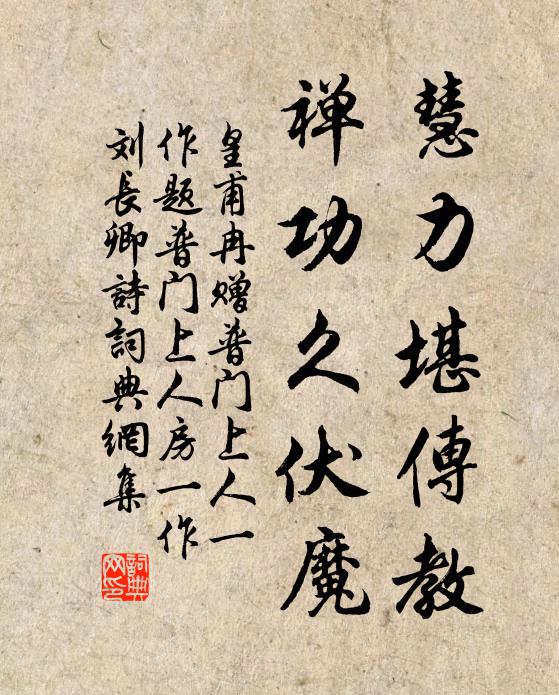 慧力堪傳教
禅功久伏魔
皇甫冉赠普门上人一
作题普门上人房一作
刘長卿詩詞典網集
詞典网印